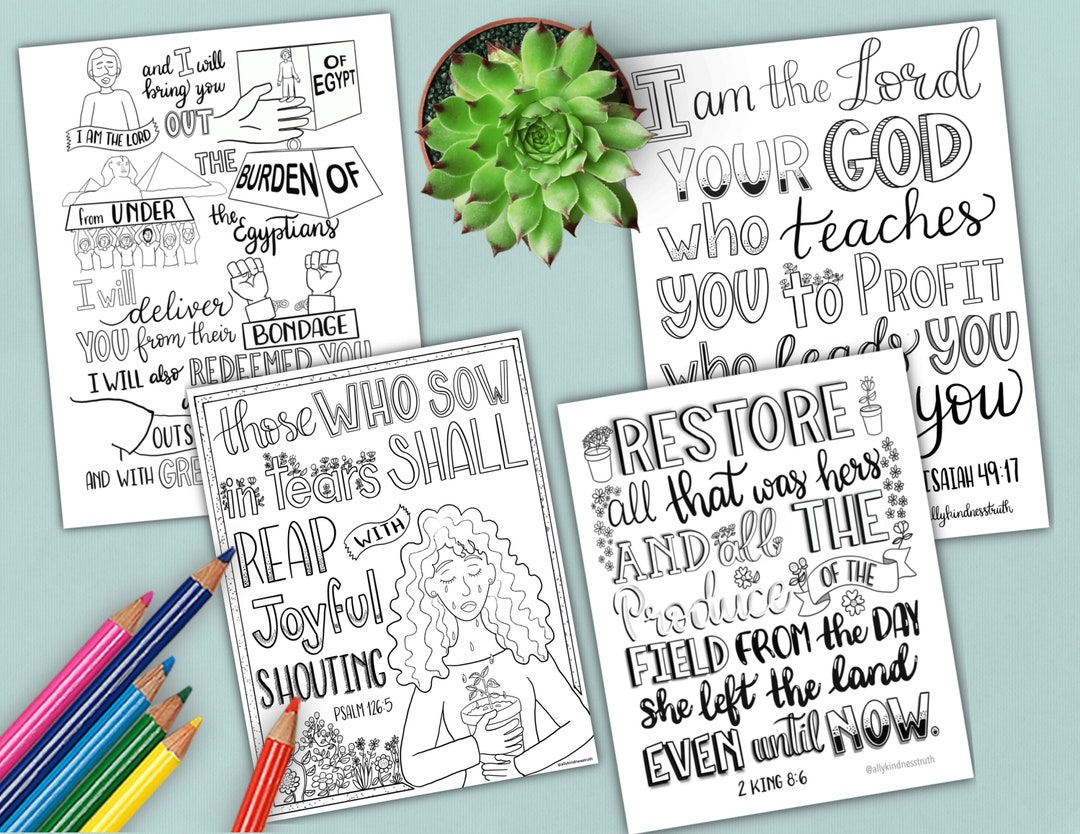 and I will
bring you
OUT
OF
EGYPT
I AM THE LORD
THE
BURDEN OF
from UNDER
the
Egyptians
I will
deliver
YOU from their
BONDAGE
I WILL also REDEEMED YOU
OUTS
AND WITH GRE
I am the Lord
YOUR GOD
who teaches
YOU to PROFIT
who leads YOU
you
ISAIAH 49:17
allykindnesstruth
those WHO SOW
in Tears SHALL
REAP WITH
Joyful
SHOUTING
PSALM 126:5
@allykindnesstruth
RESTORE
all that was hers
AND all THE
Produce OF THE
FIELD FROM the DAY
she left the land
EVEN until NOW.
@allykindnesstruth
2 KING 8:6